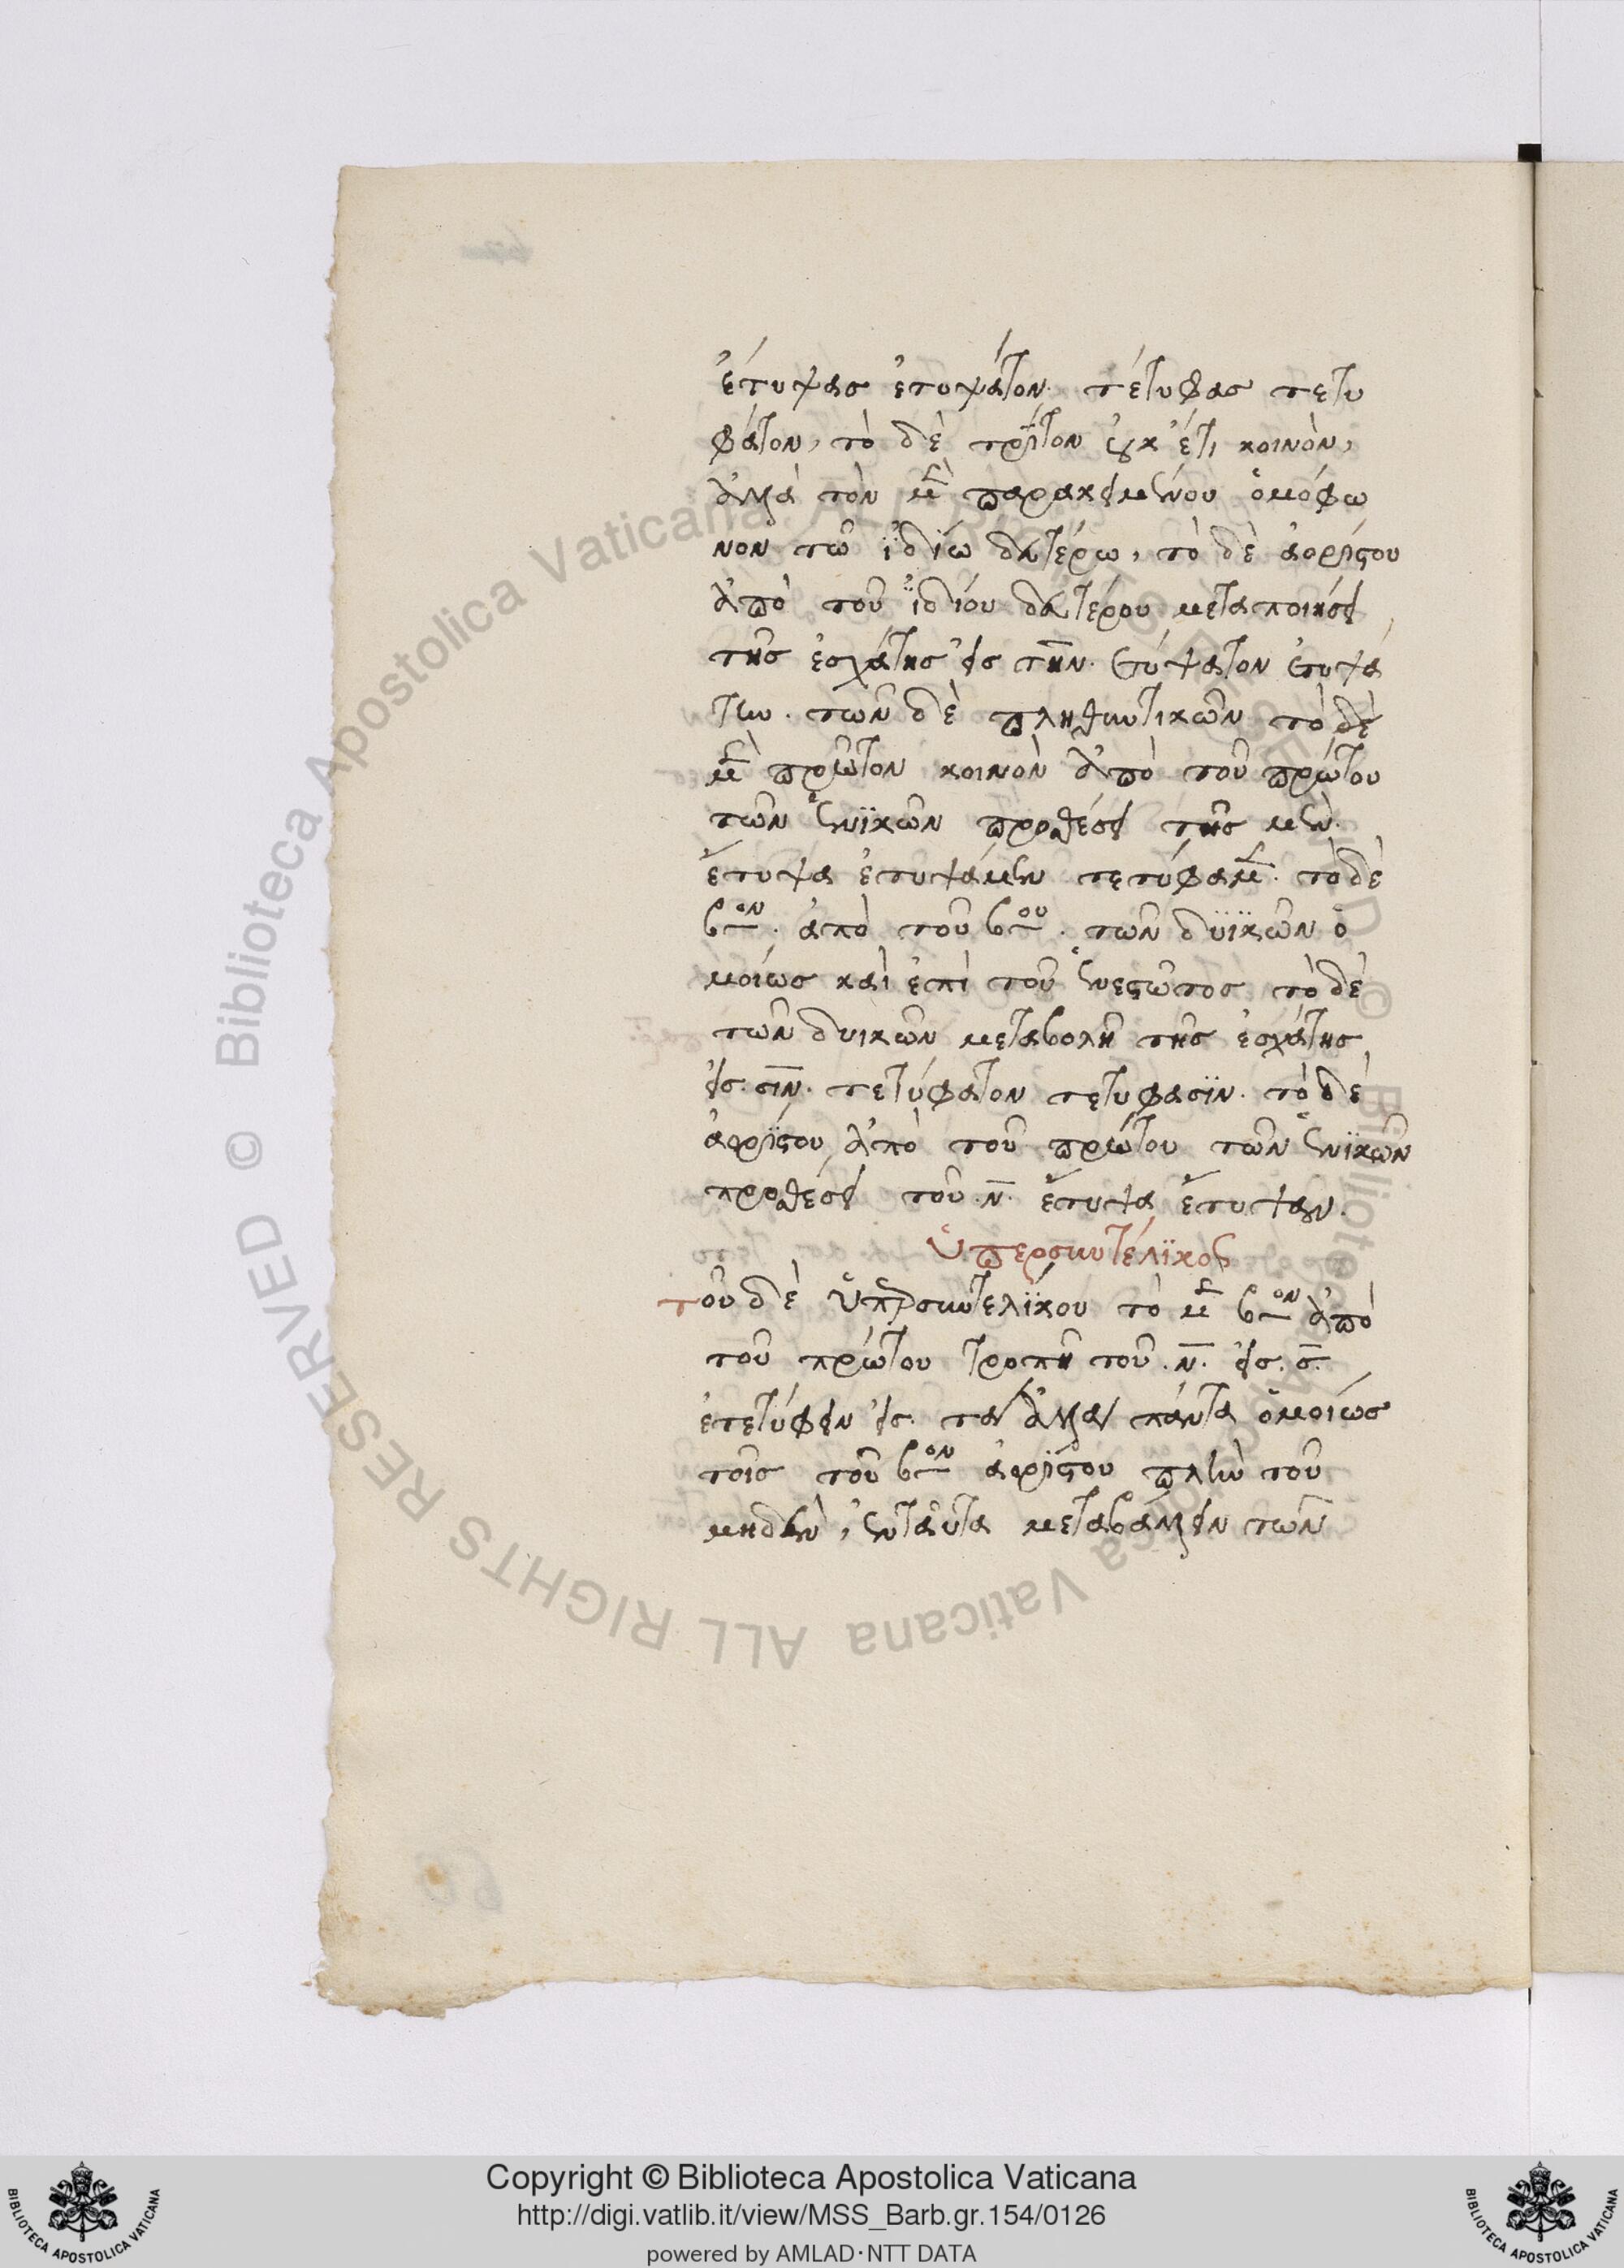 ἔτυψας ἐτυψάτον. τέτυφας τετυ
φάτον, τὸ δὲ τρίτον οὐκ ἔτι κοινὸν,
ἀλλὰ τὸν μὲν παρακειμένου ὁμόφω
νον τῶ ἰδίω δευτέρω, τὸ δὲ ἀορίστου
ἀπὸ τοῦ ἰδίου δευτέρου μεταποιήσει
τῆς ἐσχάτης εἰς την. ἐτύψατον ἐτυψά
την. τῶν δὲ πληθυντικῶν τὸ δὲ
μὲν πρῶτον κοινὸν ἀπὸ τοῦ πρώτου
τῶν ἑνϊκῶν προσθέσει τῆς μεν.
ἔτυψα ἐτυψάμεν τετύφαμεν. τὸ δὲ
βον. ἀπὸ τοῦ βου. τῶν δϋϊκῶν ὁ
μοίως καὶ ἐπὶ τοῦ ἐνεστῶτος τὸ δὲ
τῶν δυικῶν μεταβολῆ τῆς ἐσχάτης
εἰς. σιν. τετύφατον τετυφασϊν. τὸ δὲ
ἀορίστου ἀπὸ τοῦ πρώτου τῶν ἑνϊκῶν
προσθέσει τοῦ. ν. ἔτυψα ἔτυψαν.
Ὑπερσυντέλϊκος
τοῦ δὲ ὑπερσυντελϊκου τὸ μὲν βον ἀπὸ
τοῦ πρώτου τροπῆ τοῦ. ν. εἰς. σ.
ἐτετύφειν εἰς. τὰ ἀλλὰ πάντα ὁμοίως
τοις τοῦ βον ἀορίστου πλὴν τοῦ
μηδὲν, ἐνταῦτα μεταβάλλειν τῶν
Copyright © Biblioteca Apostolica Vaticana
http://digi.vatlib.it/view/MSS_Barb.gr.154/0126
powered by AMLAD·NTT DATA
BIBLIOTECA APOSTOLICA VATICANA
BIBLIOTECA APOSTOLICA VATICANA
© Biblioteca Apostolica Vaticana ALL RIGHTS RESERVED © Biblioteca Apostolica Vaticana ALL RIGHTS RESERVED